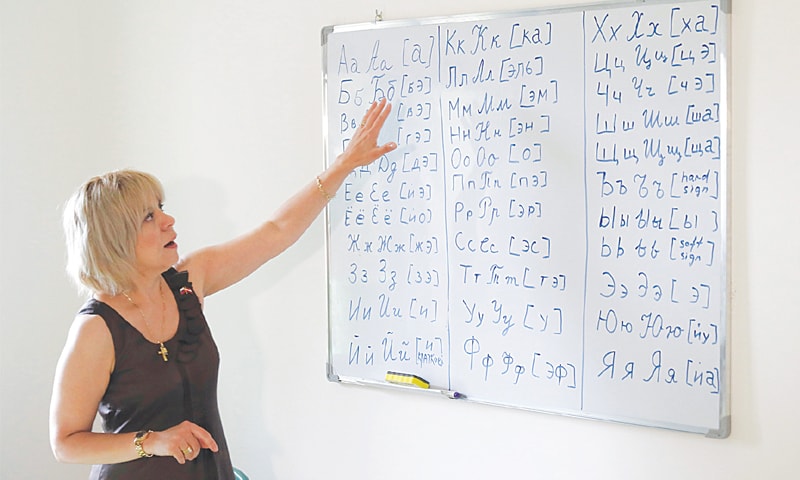 Аа Аа [а]
Бб Бб [бэ]
Вв [вэ]
[гэ]
Дд Дд [дэ]
Ее Ее [йэ]
Ёё Ёё [йо]
Жж Жж [жэ]
Зз Зз [зэ]
Ии Ии [и]
Йй Йй [и краткое]
Кк Кк [ка]
Лл Лл [эль]
Мм Мм [эм]
Нн Нн [эн]
Оо Оо [о]
Пп Пп [пэ]
Рр Рр [эр]
Сс Сс [эс]
Тт Тт [тэ]
Уу Уу [у]
Фф Фф [эф]
Хх Хх [ха]
Цц Цц [цэ]
Чч Чч [чэ]
Шш Шш [ша]
Щщ Щщ [ща]
Ъъ Ъъ [hard sign]
Ыы Ыы [ы]
Ьь Ьь [soft sign]
Ээ Ээ [э]
Юю Юю [йу]
Яя Яя [йа]